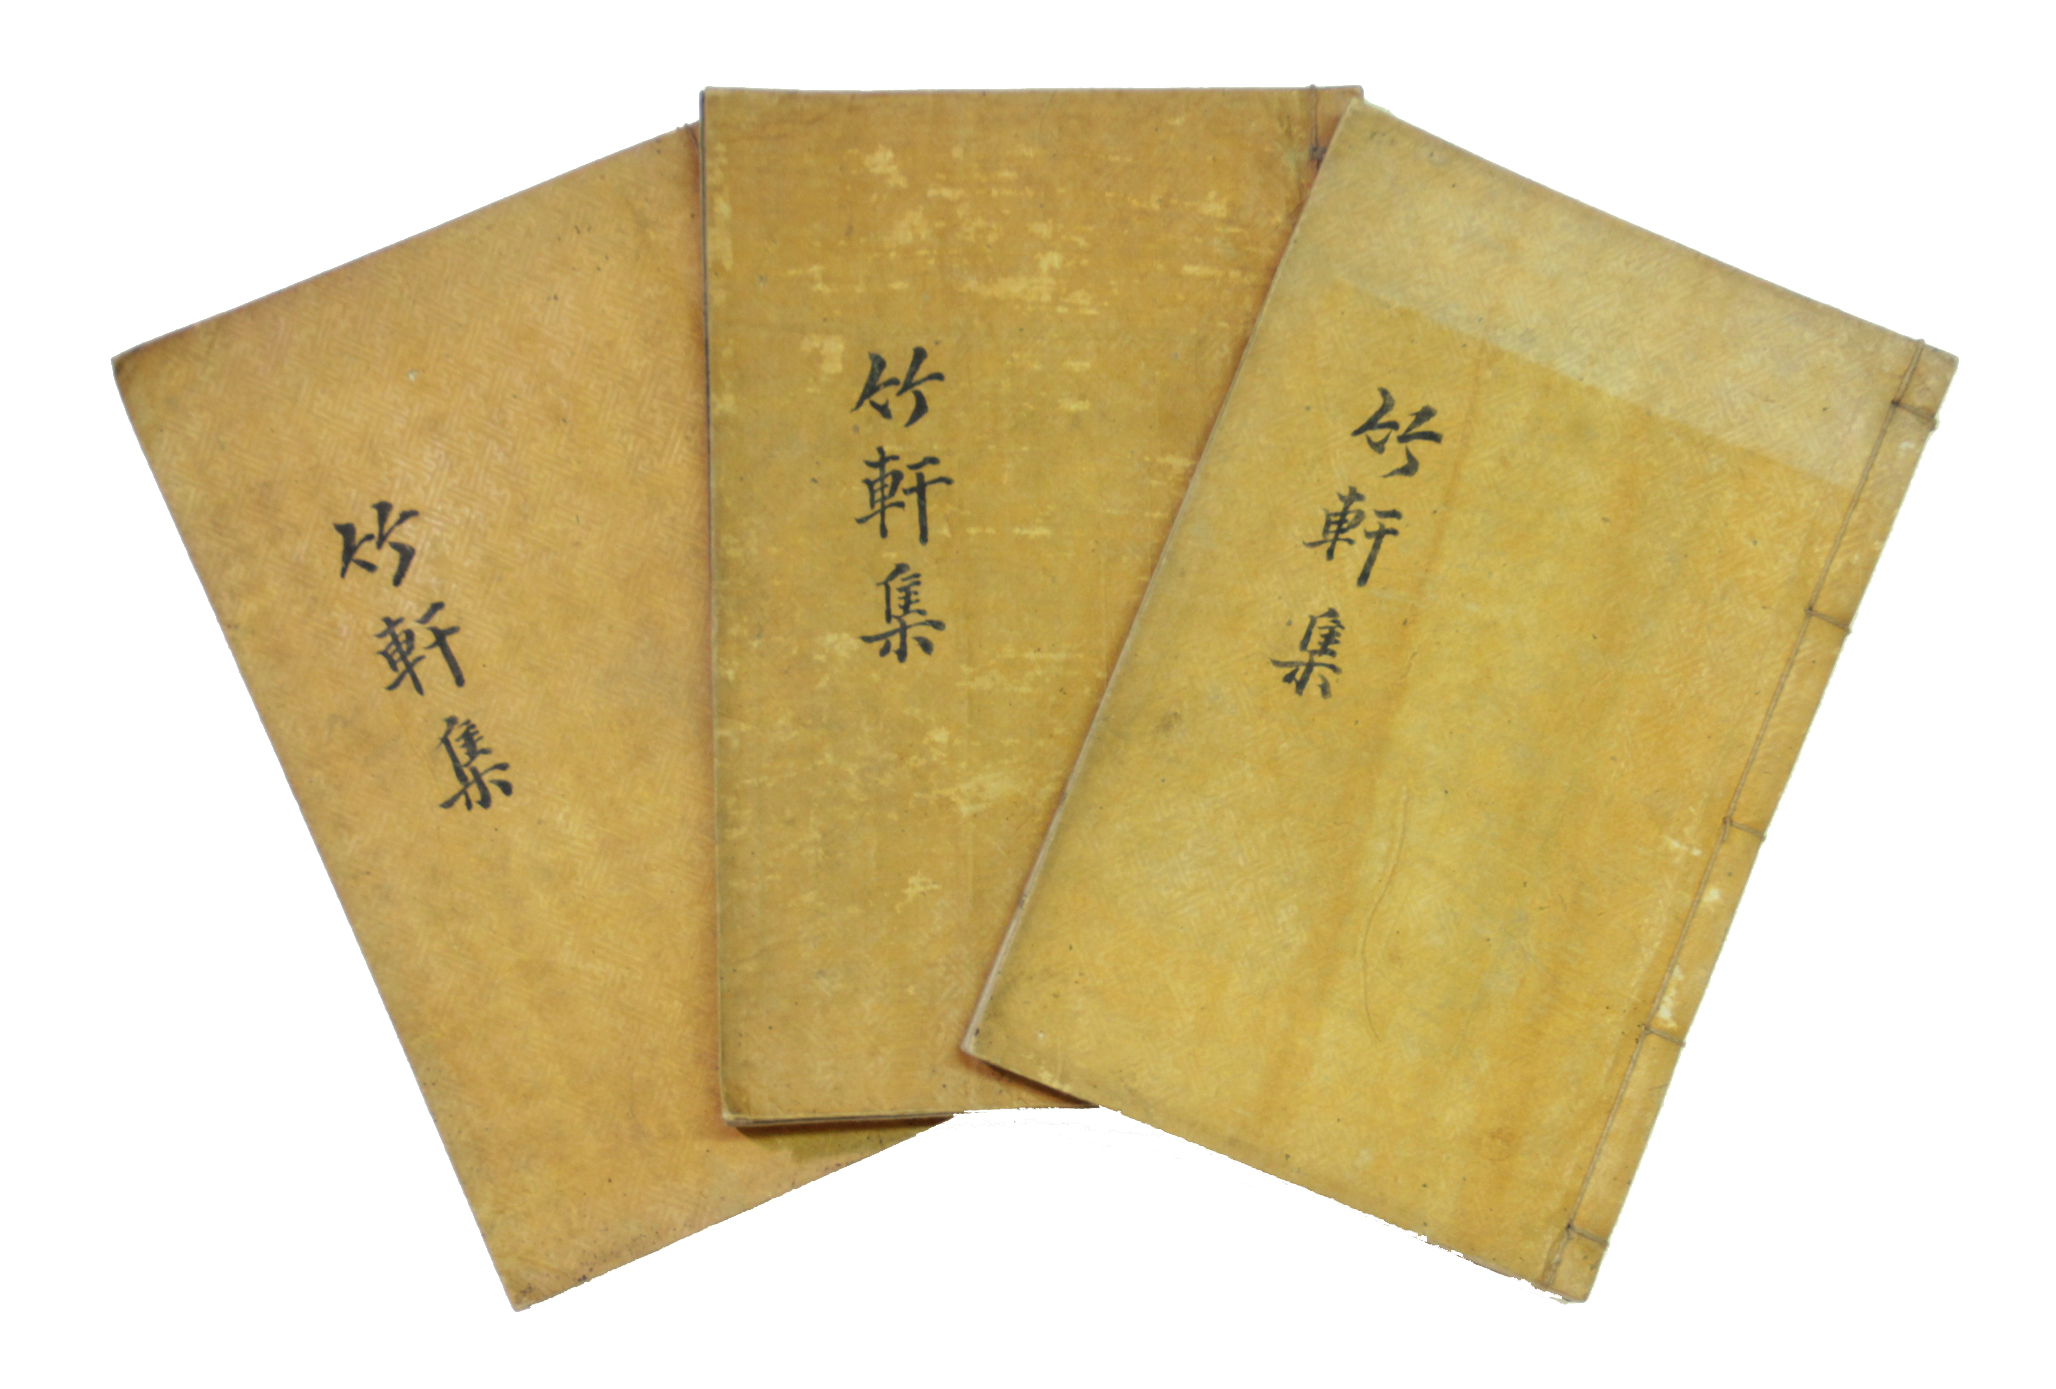 竹軒集
竹軒集
竹軒集